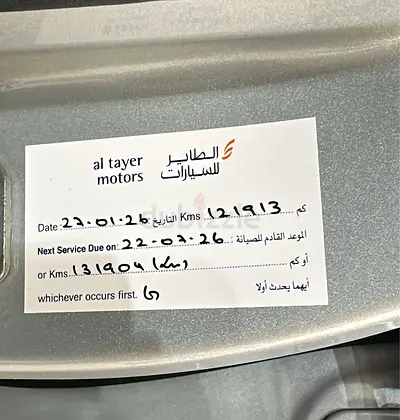 الطاير
للسيارات
al tayer
motors
Date: 27-01-26 التاريخ: Kms 121913 كم
Next Service Due on: 22-07-26 الموعد القادم للصيانة:
or Kms 131904 (km) أو كم
whichever occurs first. أيهما يحدث أولا
dubizzle